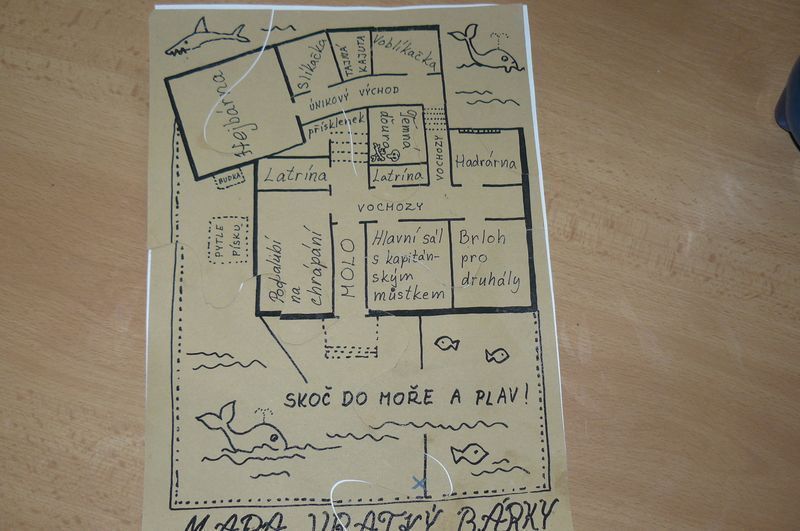 Hejbárna
Slíkačka
TAJNÁ
KAJUTA
Voblíkačka
ÚNIKOVÝ VÝCHOD
přísklenek
Temná
ďoura
VOCHOZY
Hadrárna
BUDKA
Latrína
Latrína
VOCHOZY
PYTLE
PÍSKU
Podpalubí
na
chrápání
MOLO
Hlavní sál
s kapitán-
ským
můstkem
Brloh
pro
druhály
SKOČ DO MOŘE A PLAV!
X
MAPA VRATKÝ BÁRKY